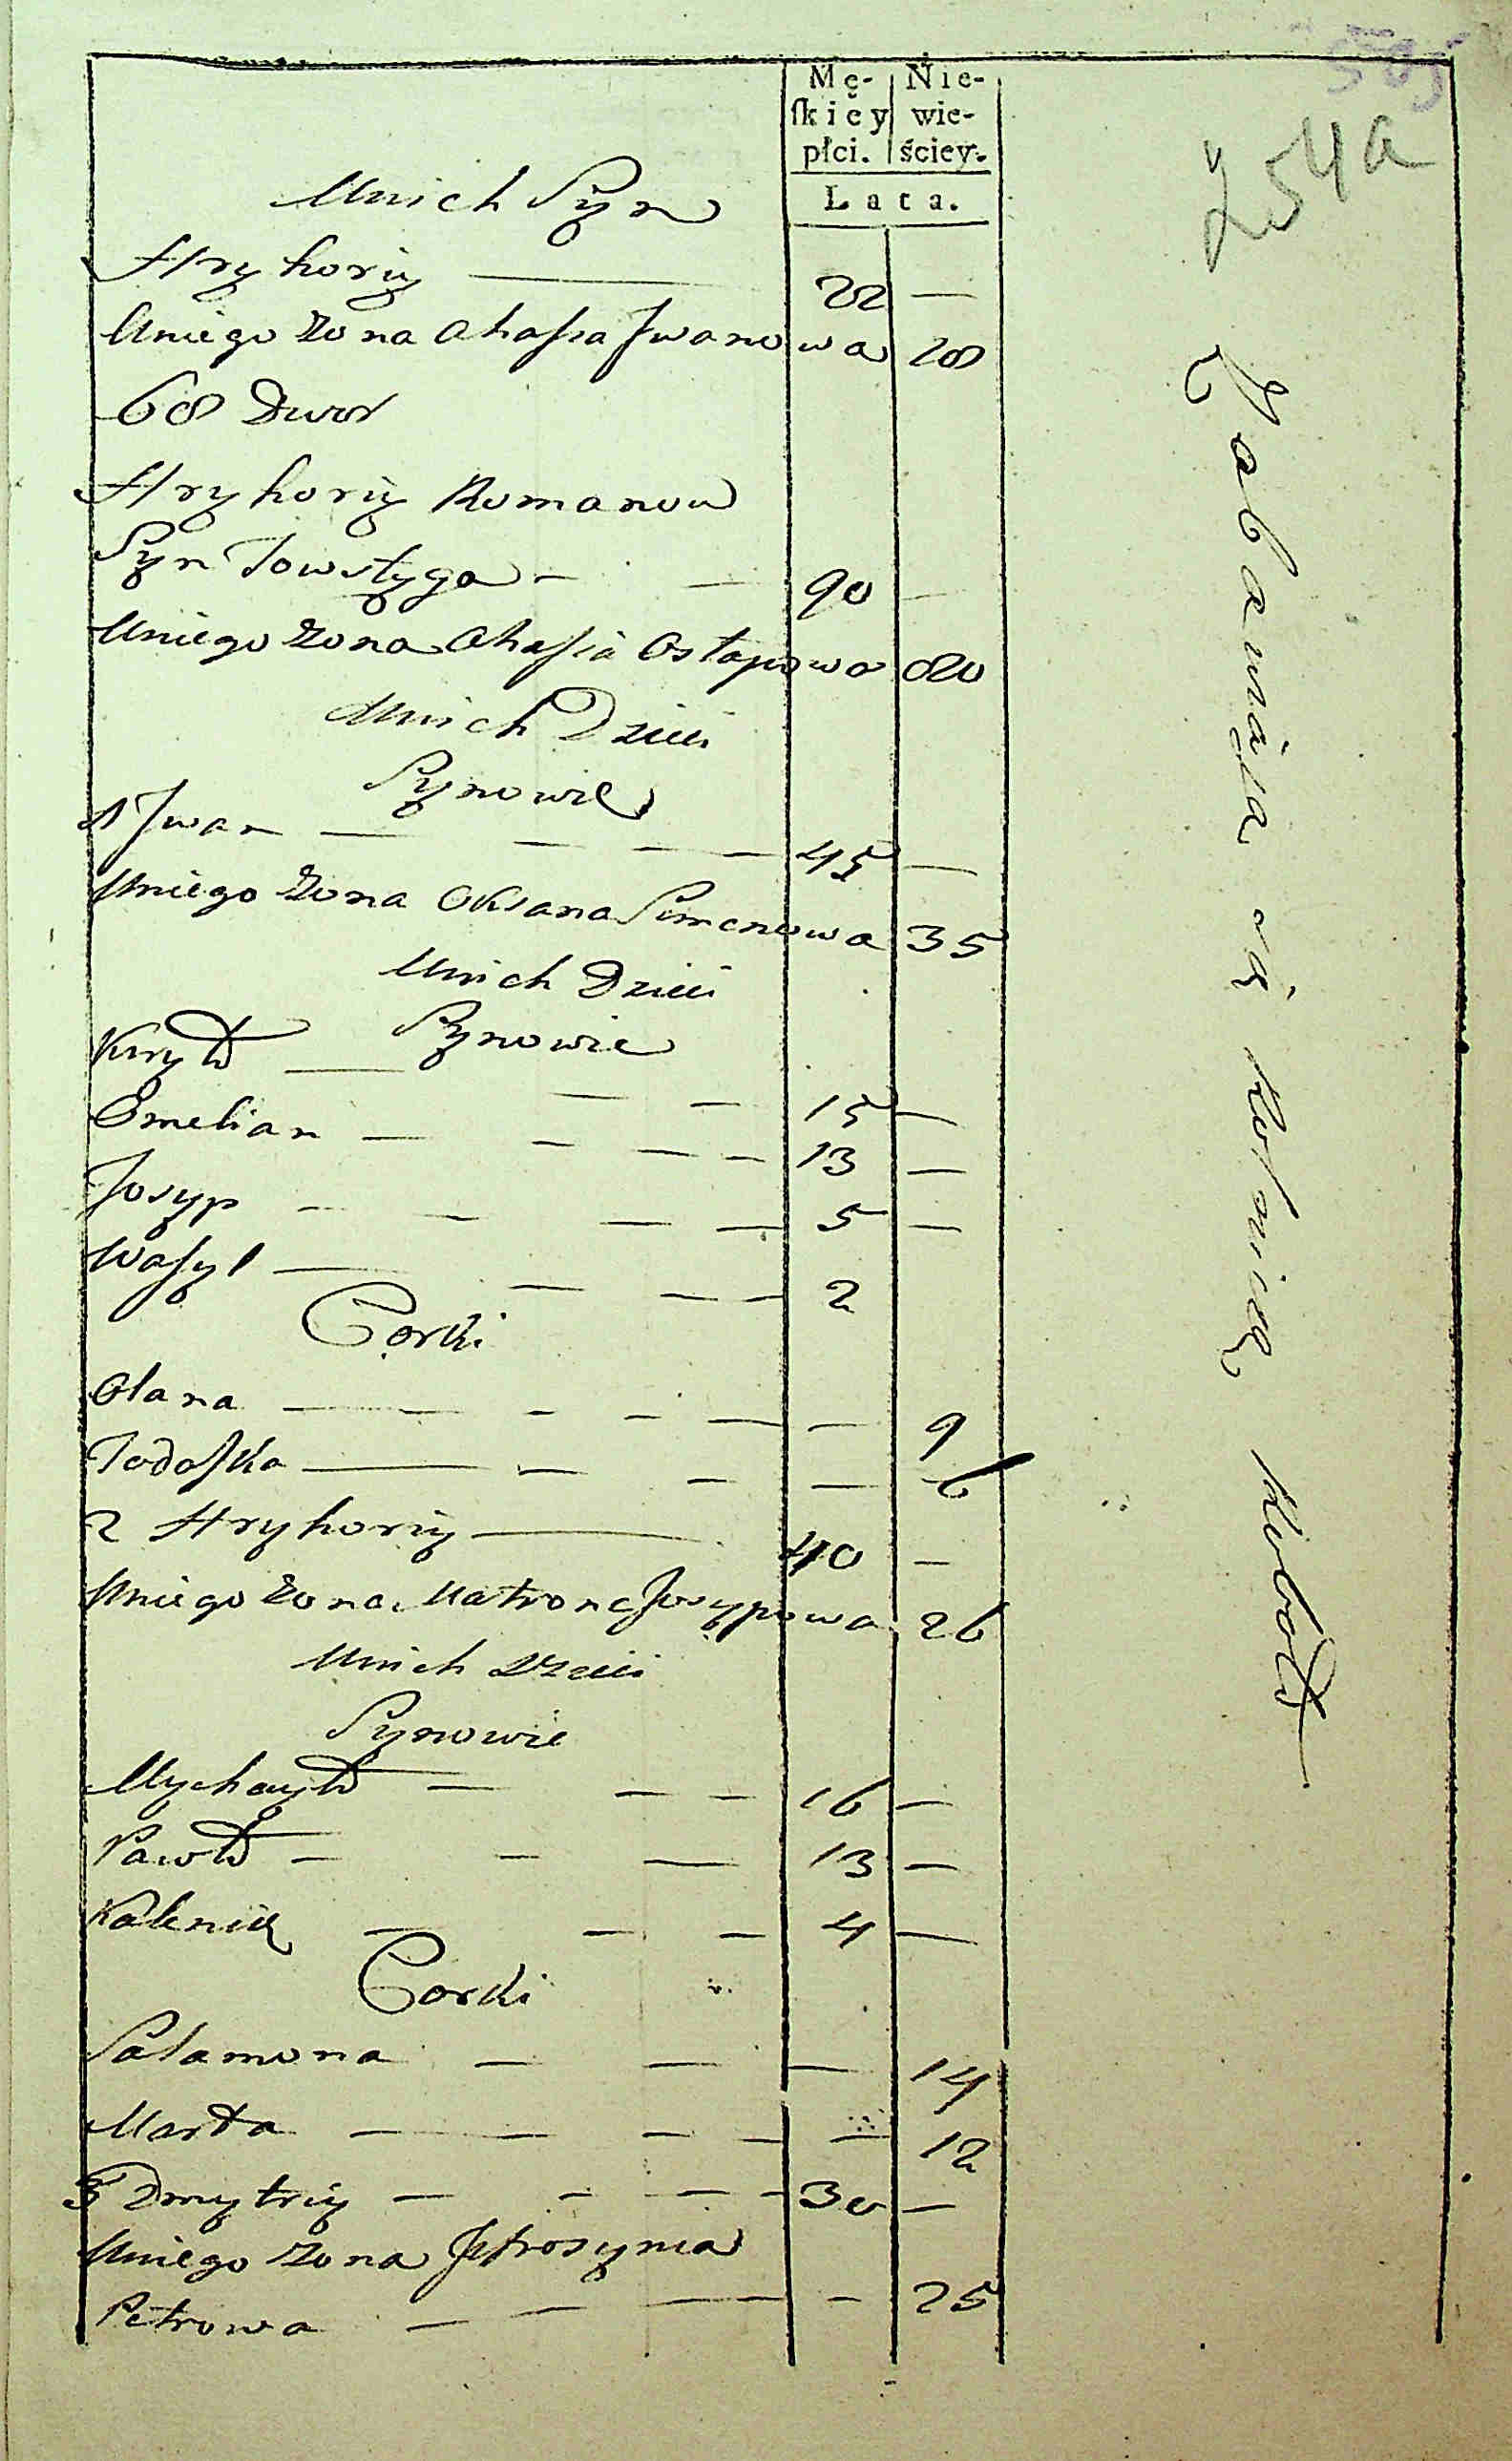 Mę- Nie-
ſkiey wie-
płci. ściey.
Lata.
254a
Unich Syn
Hryhoriy — 22 —
Uniego Zona Ahaſia Jwanowa 18
68 Dwor
Hryhoriy Romanow
Syn Towstyga - — 90 —
Uniego Zona Ahaſia Ostapowa 80
Unich Dzieci
Synowie
1 Jwan — — — — 45 —
Uniego Zona Oksana Simenowa 35
Unich Dzieci
Synowie
Kuryło — — — 15 —
Emelian — — — — 13 —
Josyp — — — — 5 —
Waſyl — — — — 2
Corki
Olana — — — — — — 9
Todoſka — — — — 6
2 Hryhoriy — 40 —
Uniego Zona Matrona Josypowa 26
Unich Dzieci
Synowie
Mychayło — — — 16 —
Pawło — — — 13 —
Kalenik — — — 4 —
Corki
Salamona — — — 14
Marta — — — — — 12
3 Dmytriy — — — - 30 —
Uniego Zona Jefrosynia
Petrowa — — — — 25
Zabawiaią się Rolnictwem